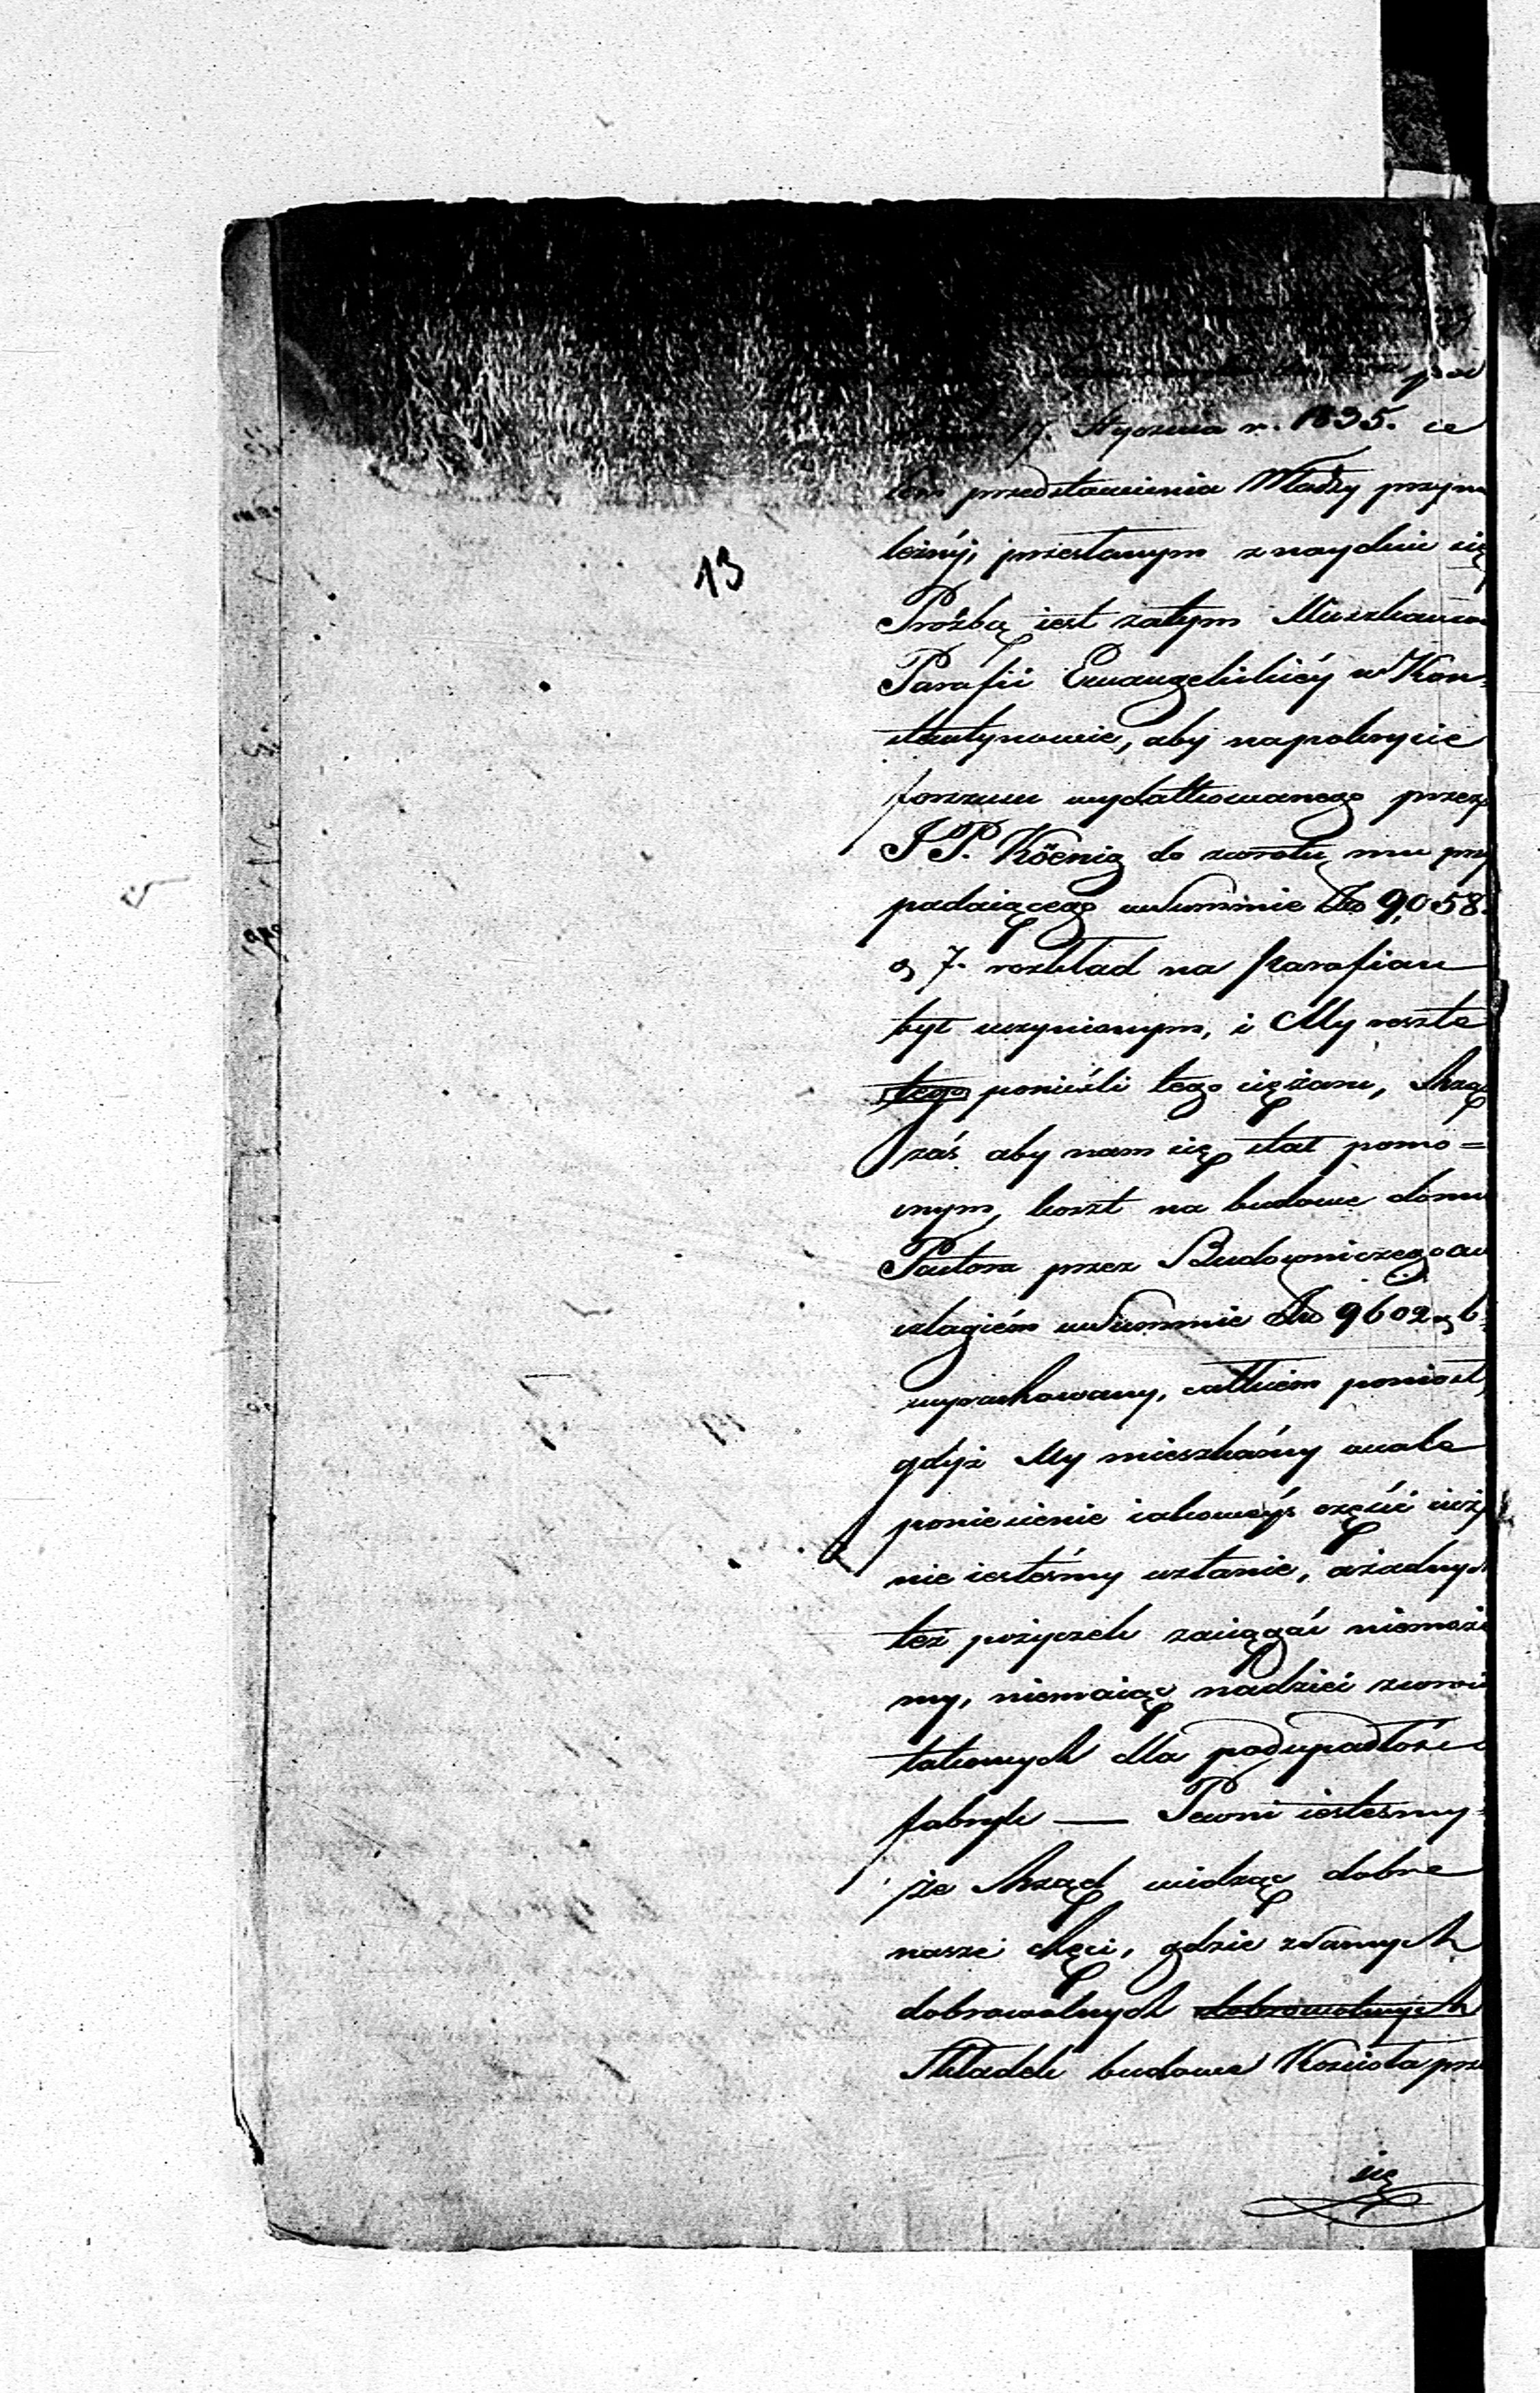 pod
17. Stycznia r. 1835. ce
lem przedstawienia Władzy przyna
leżnéj, przesłanym znayduie się
13
Prożbą iest zatym Mieszkańców
Parafii Ewangelickiéy w Kon-
stantynowie, aby na pokrycie
forszusu wydatkowanego przez
J P. Köenig do zwrotu mu przy
padaiącego w Summie Złp 9,058.
g 7. rozkład na Parafian
był uczynionym, i My resztę
tego ponieśli tego ciężaru, Rząd
zaś aby nam się stał pomo=
cnym, koszt na budowe domu
Pastora przez Budowniczego an
szlagiem w Summie Złp 9602 g 6
wyrachowany, całkiem poniósł,
gdyż My mieszkańcy wcale
poniesienie iakowéyś części iuż
nie iesteśmy wstanie, a żadnych
też pożyczek zaciągać niemoże
my, niemaiąc nadziei zwrotu
takowych dla podupadłości
fabryk — Pewni iestesmy
że Rząd widząc dobre
nasze chęci, gdzie z samych
dobrowolnych dobrowolnych
Składek budowa Kościoła prze
się